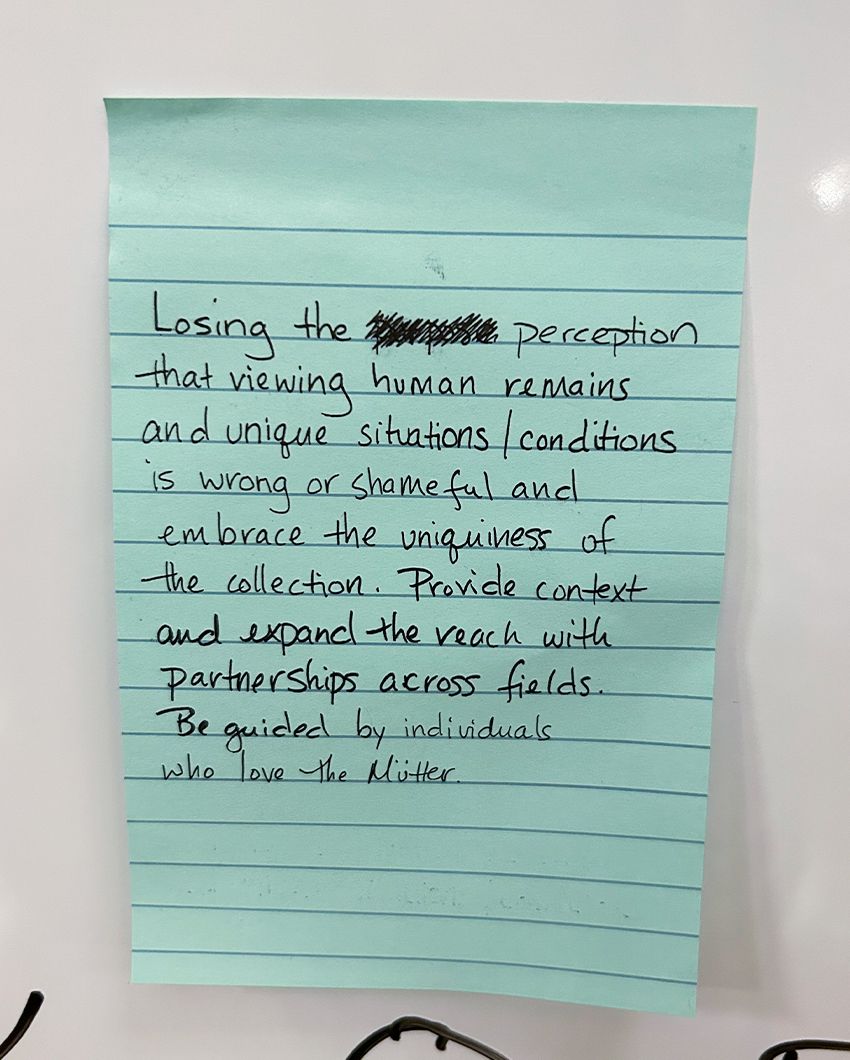 Losing the perception
that viewing human remains
and unique situations/conditions
is wrong or shameful and
embrace the uniquiness of
the collection. Provide context
and expand the reach with
partnerships across fields.
Be guided by individuals
who love the Mütter.